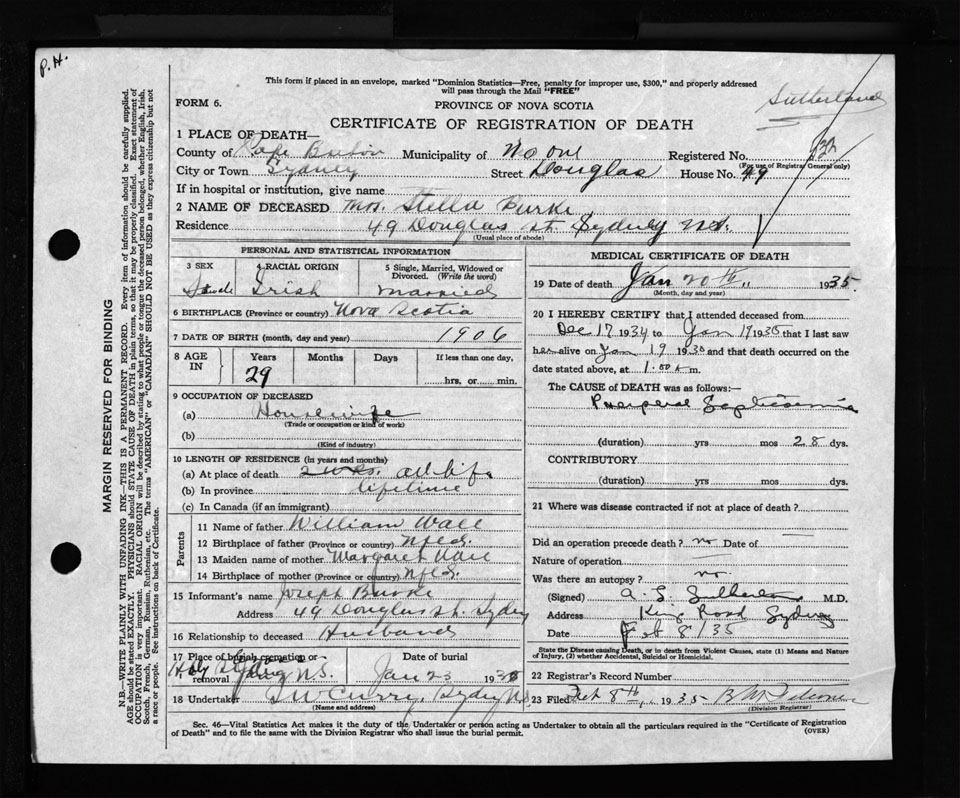 P. H.
This form if placed in an envelope, marked "Dominion Statistics—Free, penalty for improper use, $300," and properly addressed
will pass through the Mail "FREE"
FORM 6.
PROVINCE OF NOVA SCOTIA
Sutherland
CERTIFICATE OF REGISTRATION OF DEATH
1 PLACE OF DEATH—
County of Cape Breton Municipality of No one Registered No.
(For use of Registrar General only)
City or Town Sydney Street Douglas House No. 49
If in hospital or institution, give name
2 NAME OF DECEASED Mrs. Stella Burke
Residence 49 Douglas St. Sydney N.S.
(Usual place of abode)
PERSONAL AND STATISTICAL INFORMATION
3 SEX 4 RACIAL ORIGIN 5 Single, Married, Widowed or Divorced. (Write the word)
Female Irish Married
6 BIRTHPLACE (Province or country) Nova Scotia
7 DATE OF BIRTH (month, day and year) 1906
8 AGE IN Years Months Days If less than one day,
29 hrs. or min.
9 OCCUPATION OF DECEASED
(a) Housewife
(Trade or occupation or kind of work)
(b)
(Kind of industry)
10 LENGTH OF RESIDENCE (in years and months)
(a) At place of death all life
(b) In province lifetime
(c) In Canada (if an immigrant)
Parents
11 Name of father William Wall
12 Birthplace of father (Province or country) Nfld.
13 Maiden name of mother Margaret
14 Birthplace of mother (Province or country) Nfld.
15 Informant's name Joseph Burke
Address 49 Douglas St. Sydney
16 Relationship to deceased Husband
17 Place of burial cremation or removal Date of burial
Holy Sydney N.S. Jan 23 1935
18 Undertaker Curry, Sydney N.S.
(Name and address)
MEDICAL CERTIFICATE OF DEATH
19 Date of death Jan 20th 1935.
(Month, day and year)
20 I HEREBY CERTIFY that I attended deceased from
Dec 17 1934 to Jan 19 1935 that I last saw
her alive on Jan 19 1935 and that death occurred on the
date stated above, at 1.00 A m.
The CAUSE of DEATH was as follows:
Puerperal Septicaemia
(duration) yrs mos 28 dys.
CONTRIBUTORY
(duration) yrs mos dys.
21 Where was disease contracted if not at place of death?
Did an operation precede death? no Date of —
Nature of operation —
Was there an autopsy? no.
(Signed) Sutherland M.D.
Address King Road Sydney
Date Feb 8/35
State the Disease Causing Death, or in death from Violent Causes, state (1) Means and Nature
of Injury, (2) whether Accidental, Suicidal or Homicidal.
22 Registrar's Record Number
23 Filed Feb 8th, 1935
(Division Registrar)
Sec. 46—Vital Statistics Act makes it the duty of the Undertaker or person acting as Undertaker to obtain all the particulars required in the "Certificate of Registration
of Death" and to file the same with the Division Registrar who shall issue the burial permit.
(OVER)
MARGIN RESERVED FOR BINDING
N.B.—WRITE PLAINLY WITH UNFADING INK—THIS IS A PERMANENT RECORD. Every item of information should be carefully supplied.
AGE should be stated EXACTLY. PHYSICIANS should STATE CAUSE OF DEATH in plain terms, so that it may be properly classified. Exact statement of
OCCUPATION is very important. RACIAL ORIGIN will be described by stating to what people or tongue the deceased person belonged, whether English, Irish,
Scotch, French, German, Russian, Ruthenian, etc. The terms "AMERICAN" or "CANADIAN" SHOULD NOT BE USED as they express citizenship but not
a race or people. See instructions on back of Certificate.